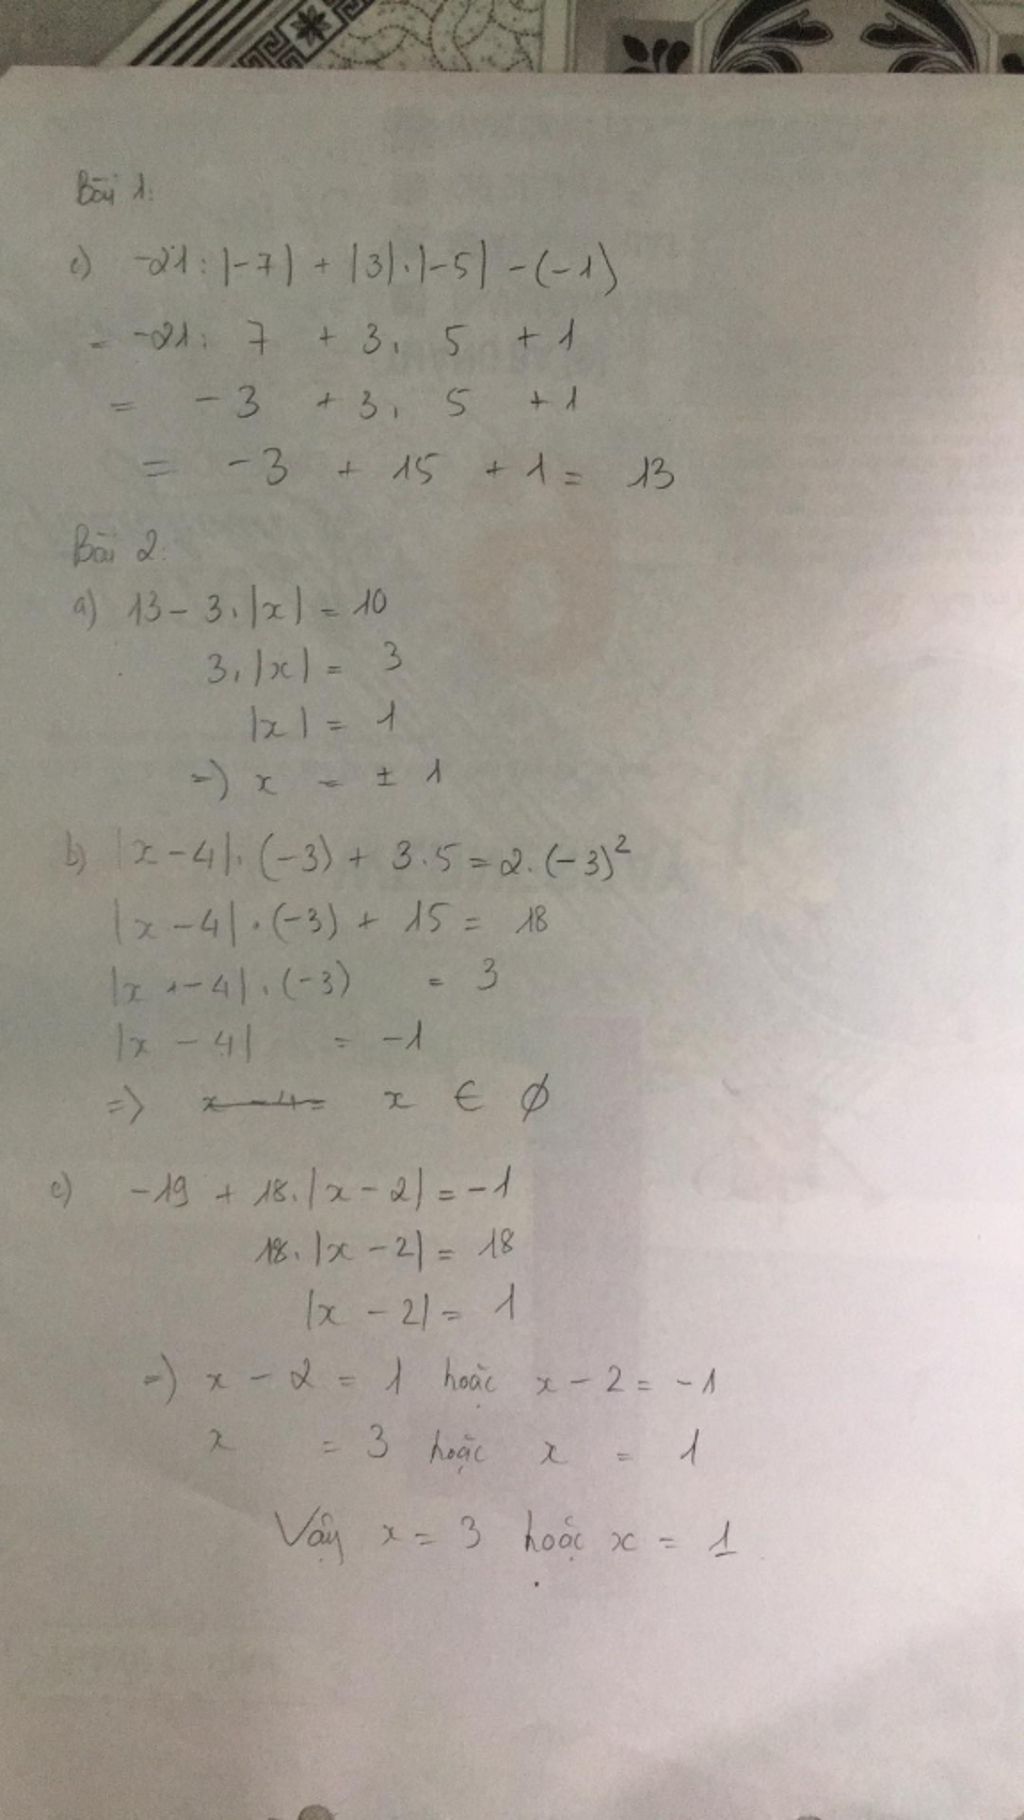 Bài 1:
c) -21 : |-7| + |3| . |-5| - (-1)
= -21 : 7 + 3 . 5 + 1
= -3 + 3 . 5 + 1
= -3 + 15 + 1 = 13
Bài 2:
a) 13 - 3 . |x| = 10
3 . |x| = 3
|x| = 1
=) x = ± 1
b) |x - 4| . (-3) + 3 . 5 = 2 . (-3)²
|x - 4| . (-3) + 15 = 18
|x - 4| . (-3) = 3
|x - 4| = -1
=> x - 4 = x ∈ ∅
c) -19 + 18 . |x - 2| = -1
18 . |x - 2| = 18
|x - 2| = 1
=) x - 2 = 1 hoặc x - 2 = -1
x = 3 hoặc x = 1
Vậy x = 3 hoặc x = 1